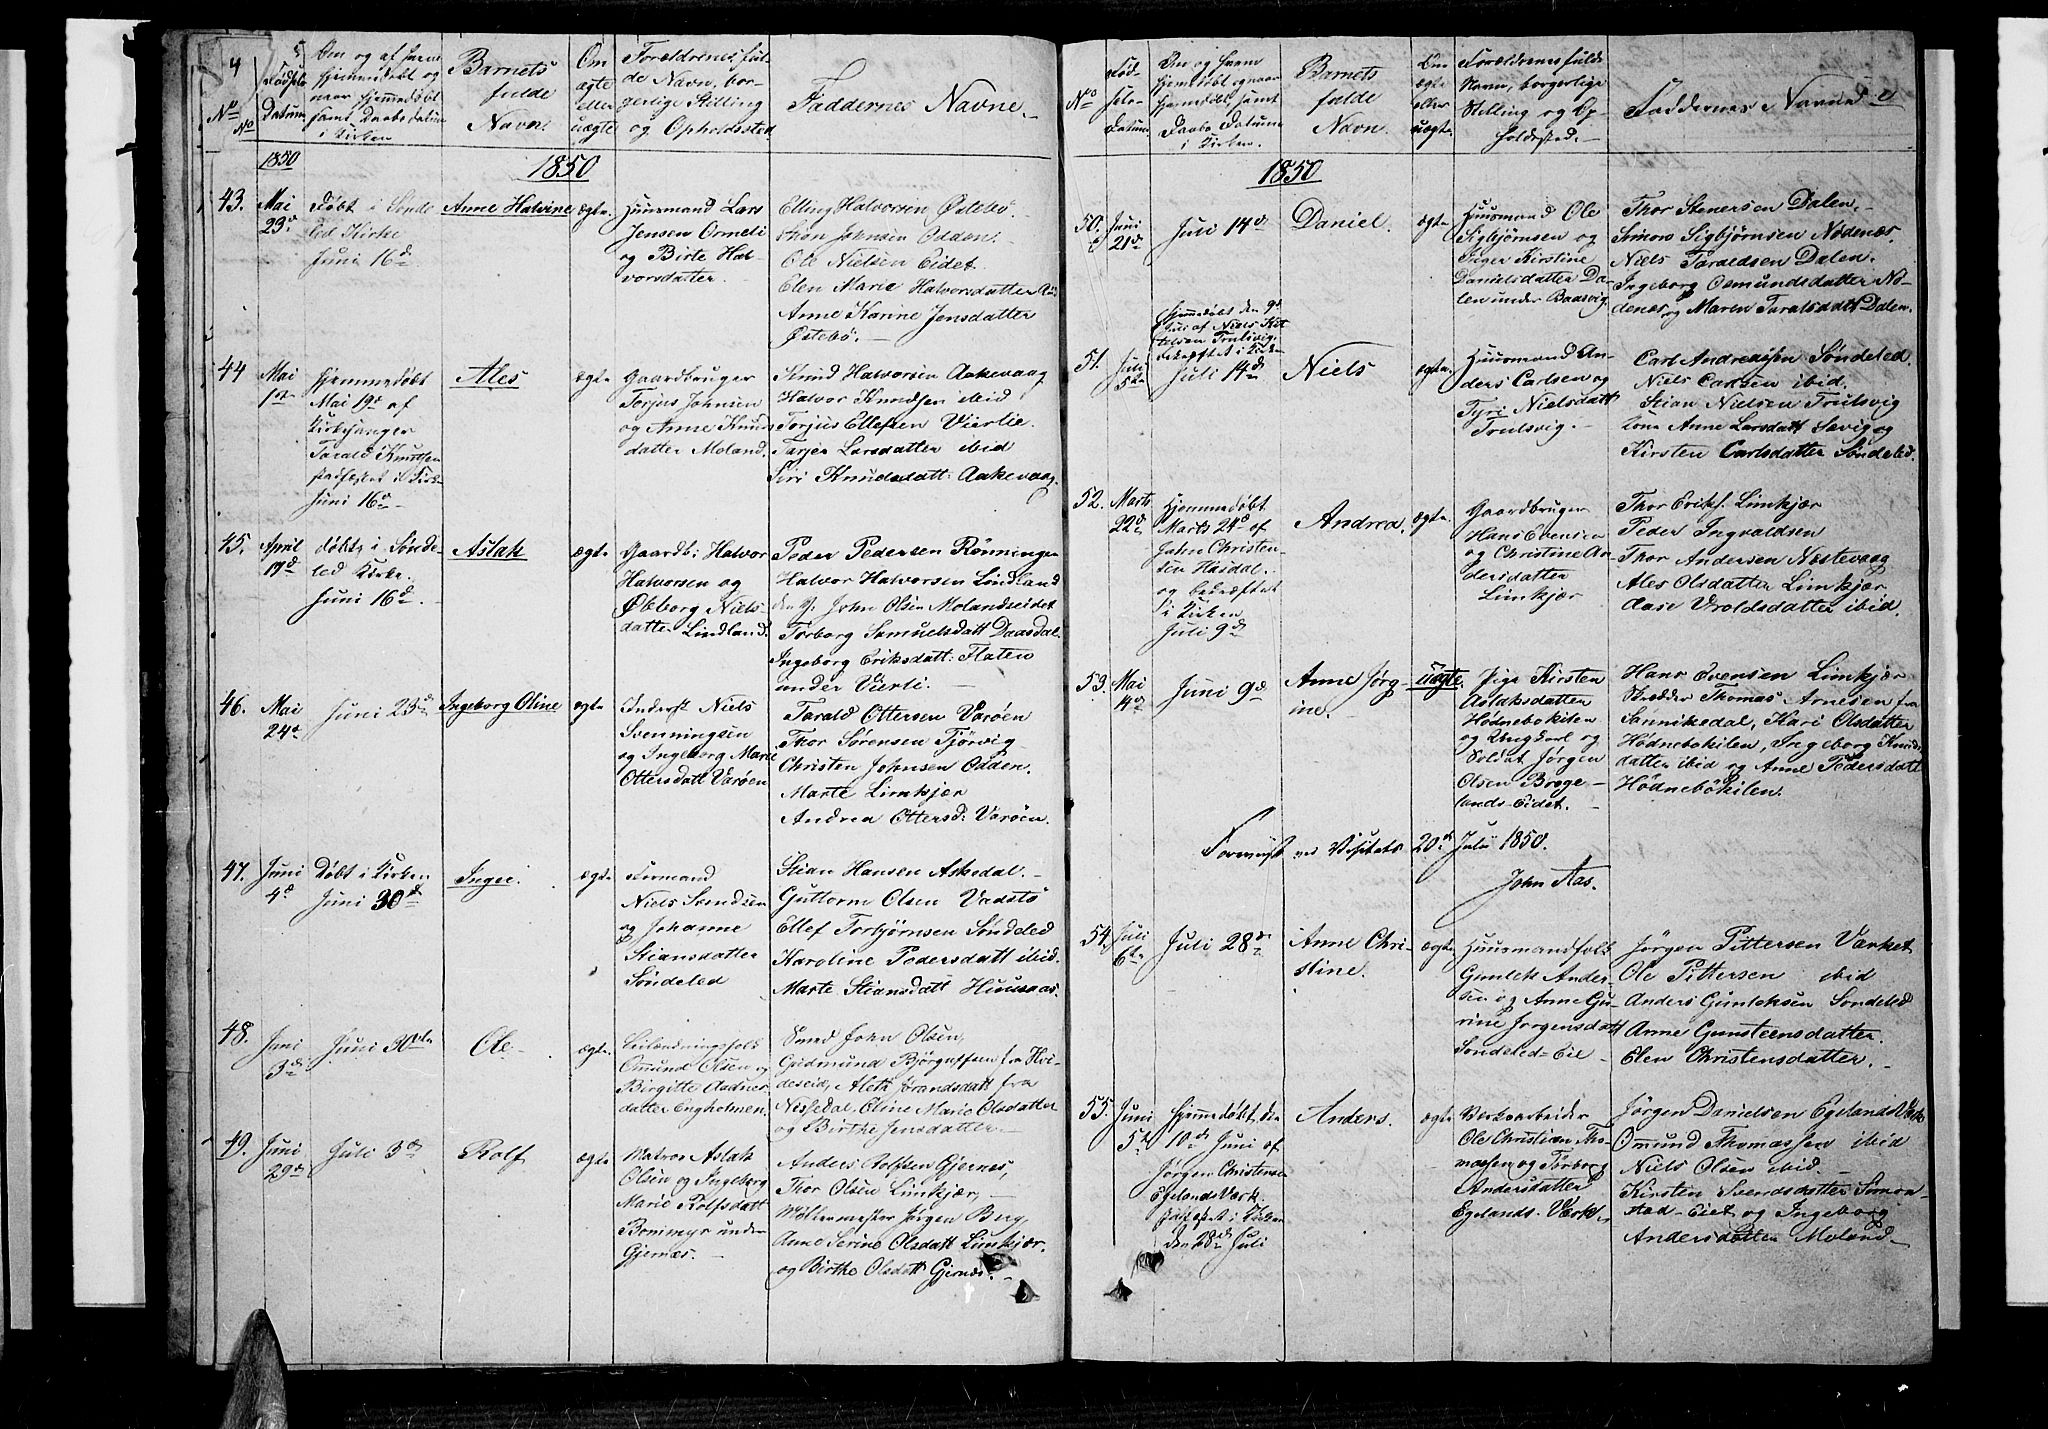 4
No
No
Fødsels
Datum
Om og af hvem
hjemmedøbt og
naar hjemmedøbt
samt Daabs Datum
i Kirken
Barnets
fulde
Navn.
Om
ægte
eller
uægte
Forældrenes ful-
de Navn, bor-
gerlige Stilling
og Opholdssted
Faddernes Navne.
1850
1850
43.
Mai
23d
Døbt i Sønde
led Kirke
Juni 16d
Anne Halvine
ægte
Huusmand Lars
Jensen Ormeli
og Birte Hal-
vorsdatter.
Elling Halvorsen Østebø.
Thon Johnsen Odden.
Ole Nielsen Eidet
Elen Marie Halvorsdatter
Anne Karine Jensdatter
Østebø.
44
Mai
1ste
hjemmedøbt
Mai 19d af
Kirkesanger
Tarald Knutsen
Juni 16d
Ales
ægte
Gaardbruger
Torjus Johnsen
og Anne Knuds
datter Moland
Knud Halvorsen Aakevaag
Halvor Knudsen ibid
Torjus Ellefsen Vierlie.
Tarjer Larsdatter ibid
Siri Knudsdatt: Aakevaag
45.
April
17d
døbt i Sønde-
led Kirke.
Juni 16d
Aslak
ægte
Gaardb: Halvor
Halvorsen og
Øbborg Niels-
datter Lindland.
Peder Pedersen Rønningen
Halvor Halvorsen Lindland
den y. John Olsen Molandseidet
Torborg Samuelsdatt Daasdal.
Ingeborg Eriksdatt: Flaten
under Vierli.
46.
Mai
24d
Juni 23d
Ingeborg Oline
ægte
Inderst Niels
Svenningsen
og Ingeborg Marie
Ottersdatt Varøen
Tarald Ottersen Varøen
Thor Sørensen Tjørvig
Christen Johnsen Odden.
Marte Limkjær
Andrea Ottersd: Varøen.
47.
Juni
4d
Døbt i Kirken
Juni 30d
Inger.
ægte
Formand
Niels Svendsen
og Johanne
Stiansdatter
Søndeled
Stian Hansen Askedal.
Guttorm Olsen Vadstø
Ellef Torbjørnsen Søndeled
Karoline Pedersdatt ibid.
Marte Stiansdatt Huusaas.
48.
Juni
3d
Juni 30te
Ole
ægte
Omund Olsen og
Birgitte Aadner
datter Engholmen.
Smed John Olsen,
Gudmund Bjørguffsen fra Hvi-
deseid, Aleta Jørandsdatt fra
Nissedal, Oline Marie Olsdatter
og Birthe Jensdatter.
49.
Juni
29d
Juli 3d
Rolf
ægte
Matros Aslak
Olsen og Ingeborg
Marie Rolfsdatt
Bommyr under
Gjernæs.
Anders Rolfsen Gjernes,
Thor Olsen Limkjær,
Møllermester Jørgen Bug,
Anne Serine Olsdatt Limkjær.
og Birthe Olsdatt Gjernæs.
No
Fød-
sels-
Datum.
Om og hvem
hjemmedøbt og naar
hjemmedøbt, samt
Daabs Datum
i Kirken.
Barnets
fulde
Navn.
Om
ægte
eller
uægte
Forældrenes fulde
Navn, borgerlige
Stilling og Op-
holdssted.
Faddernes Navne
1850
50.
Juni
21de
Juli 14d
Daniel.
ægte
Huusmand Ole
Sigbjørnsen og
Inger Kirstine
Danielsdatter Da-
len under Baasvig.
Thor Stenersen Dalen.
Simon Sigbjørnsen Nødenæs
Niels Taraldsen Dalen.
Ingeborg Osmundsdatter Nø-
denæs og Maren Taralsdatt Dalen.
51.
Juli
5te
Hjemmedøbt den 9d
Juli af Niels Ket
telsen Trulsvig,
bekræftet i Kirken
Juli 14d
Niels
ægte
Huusmand An-
ders Carlsen og
Tyri Nielsdatt
Trulsvig.
Carl Andreassen Søndeled.
Niels Carlsen ibid.
Stian Nielsen Trulsvig
Kone Anne Larsdatt Sævig og
Kirsten Carlsdatter Søndeled.
52.
Marts
22d
Hjemmedøbt
Marts 24d af
John Christen-
sen Hasdal.
og bekræftet
i Kirken
Juli 9d
Andrea.
ægte
Gaardbruger
Hans Evensen
og Christine An-
dersdatter
Limkjær
Thor Eriks. Limkjær
Peder Ingvaldsen
Thor Andersen Næstevaag
Ales Olsdatter Limkjær
Aase Vroldsdatter ibid.
53.
Mai
14d
Juni 9d
Anne Jørg-
ine.
uægte
Pige Kirsten
Aslaksdatter
Hødnebøkilen
og Ungkarl og
Soldat Jørgen
Olsen Brøge-
lands-Eidet.
Hans Evensen Limkjær
Skrædder Thomas Arnesen fra
Sannikedal, Kari Olsdatter
Hødnebøkilen, Ingeborg Knuds
datter ibid og Anne Pedersdatt
Hødnebøkilen.
Foreviist ved Visitats 20de Juli 1850.
John Aas.
54.
Juli
6te
Juli 28d
Anne Chri-
stine.
ægte
Huusmandfolk
Gunlek Ander-
sen og Anne Gu-
rine Jørgensdatt
Søndeled-Eie
Jørgen Pittersen Værket
Ole Pittersen ibid
Anders Gunleksen Søndeled
Anne Gunsteensdatter
Elen Christensdatter.
55.
Juni
5te
Hjemmedøbt den
10de Juni af
Jørgen Christensen
Egelands Værk.
i Kirken
den 28d Juli
Anders.
ægte
Værksarbeider
Ole Christian Tho-
massen og Torborg
Andersdatter
Egelands-Værk.
Jørgen Danielsen Egelands Værk
Omund Thomassen ibid
Niels Olsen ibid.
Kirsten Svendsdatter Simon-
stad-Eiet og Ingeborg
Andersdatter Moland